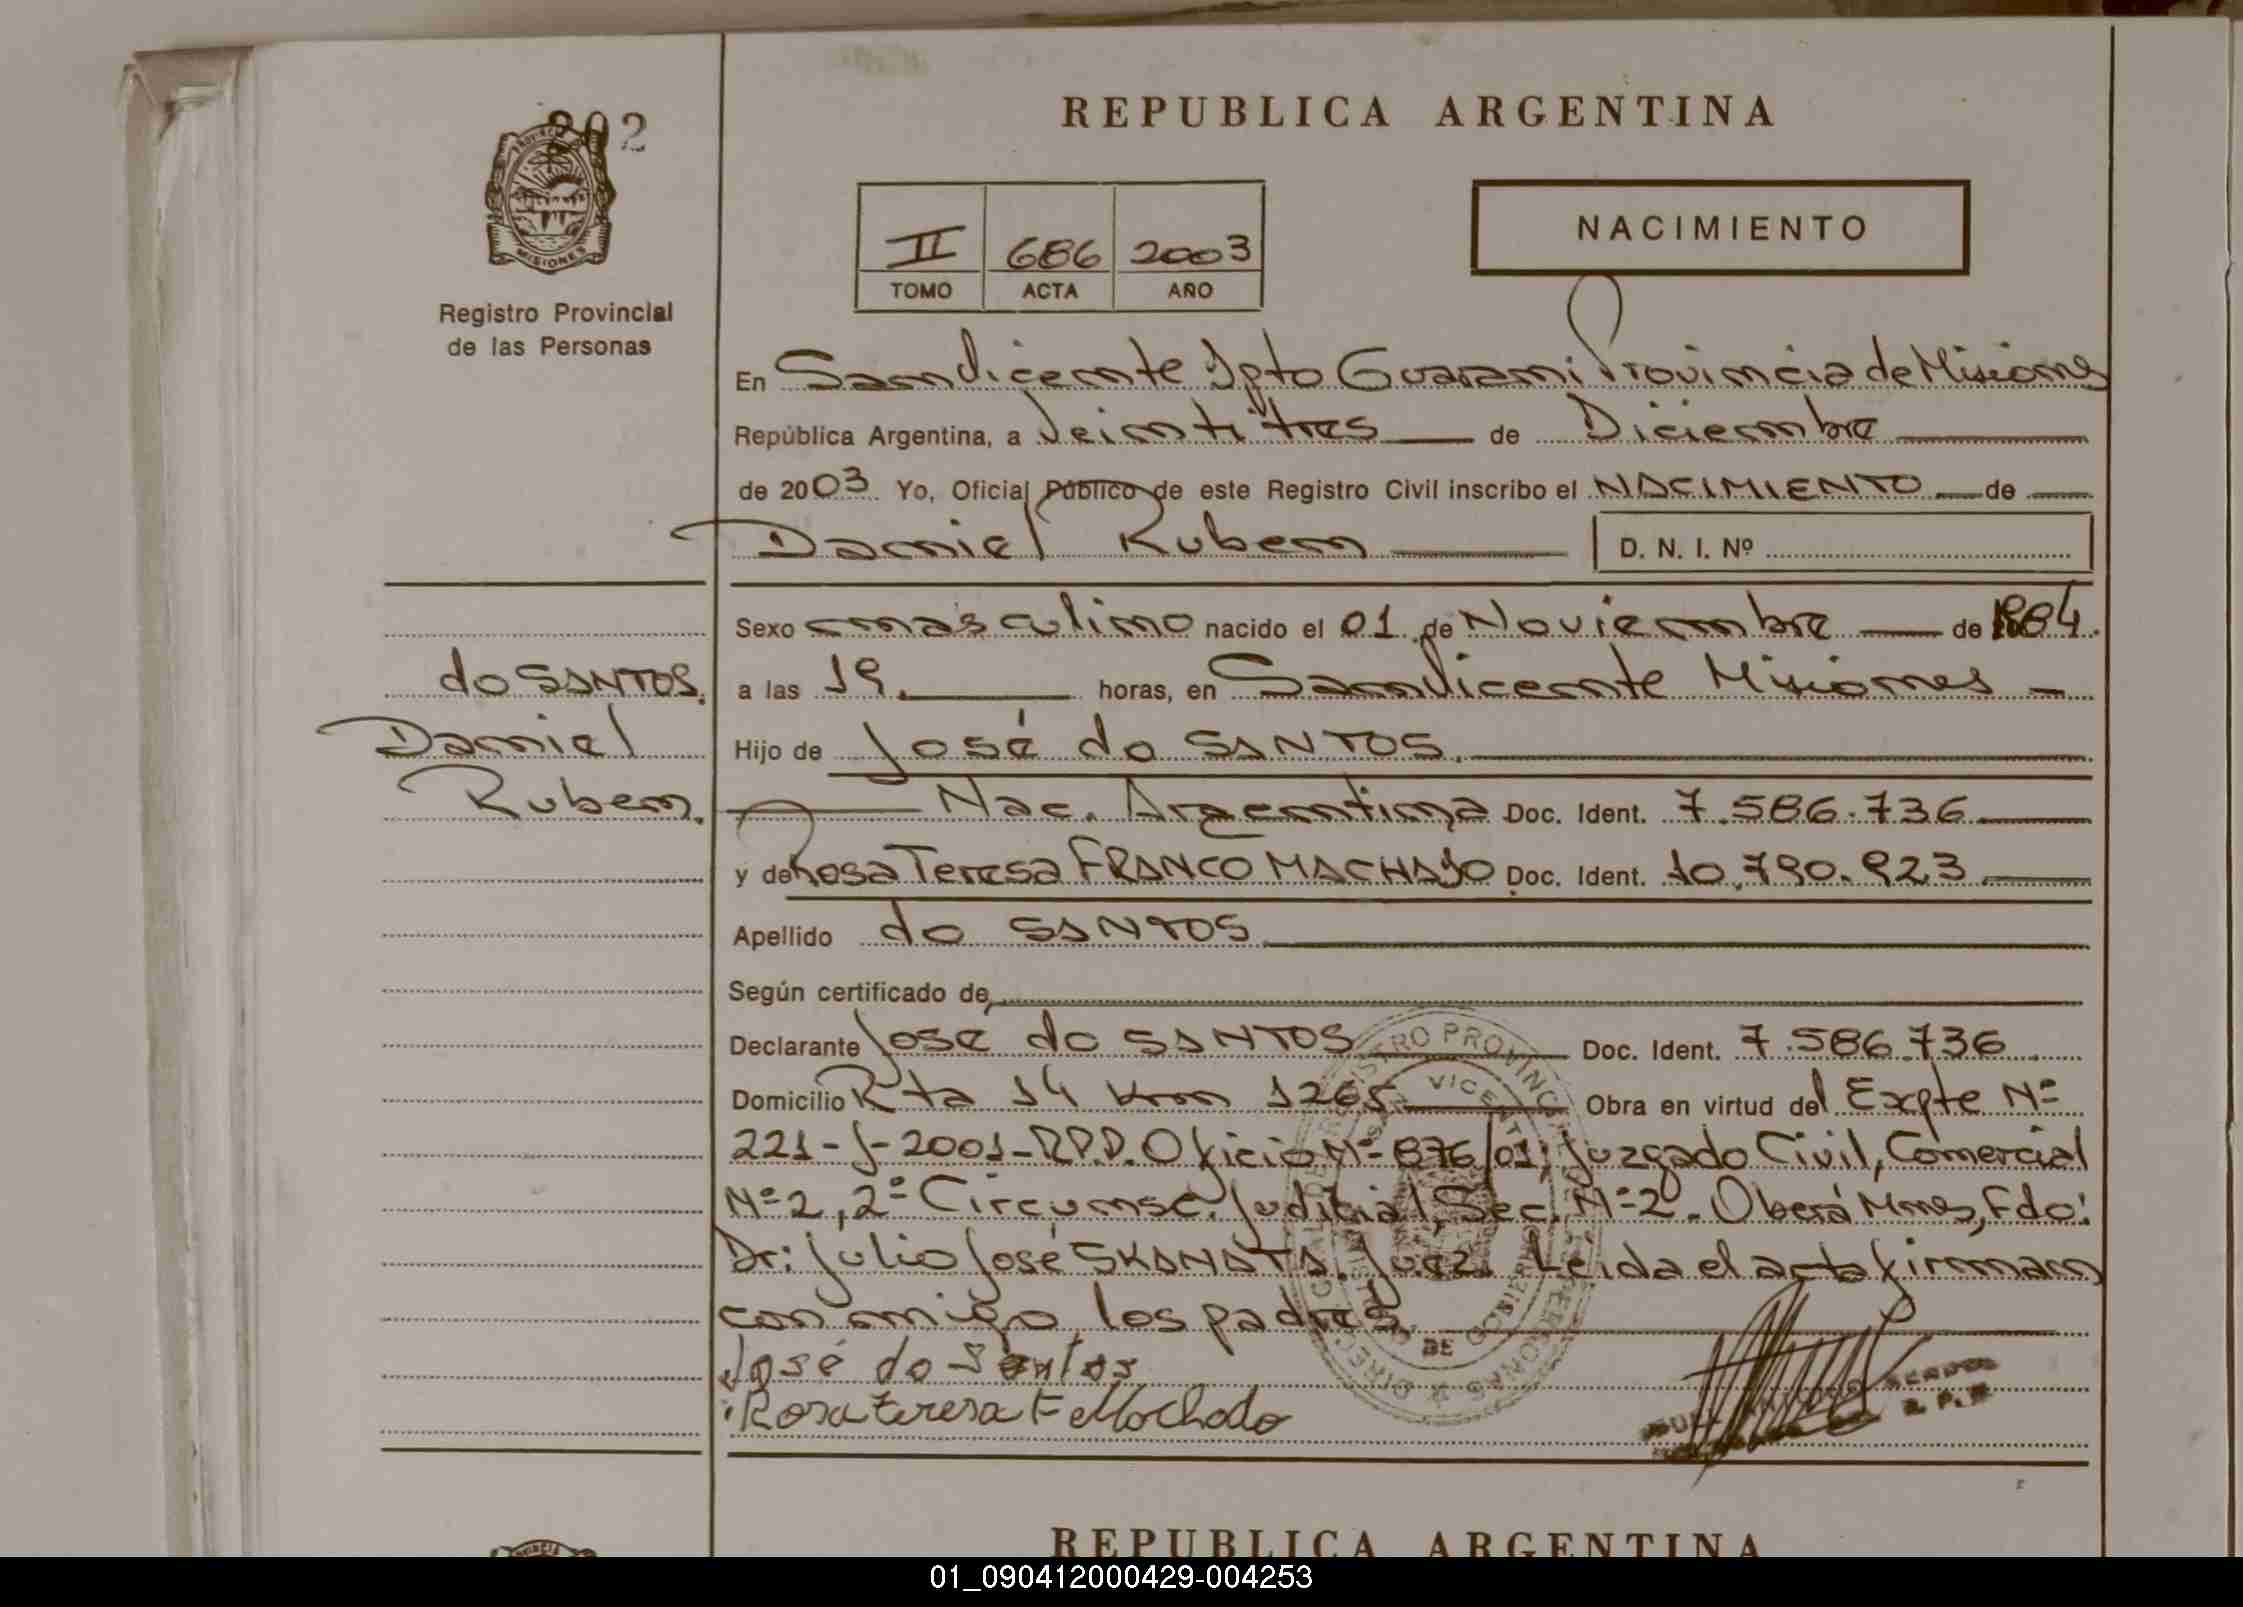 202
PROVINCIA
MISIONES
Registro Provincial
de las Personas
REPUBLICA ARGENTINA
NACIMIENTO
II 686 2003
TOMO ACTA AÑO
En San Vicente Dpto Guarani Provincia de Misiones
República Argentina, a Veintitres de Diciembre
de 2003 Yo, Oficial Público de este Registro Civil inscribo el NACIMIENTO de
Daniel Ruben D. N. I. Nº
Sexo masculino nacido el 01 de Noviembre de 1984.
do SANTOS.
a las 19. horas, en San Vicente Misiones
Daniel
Hijo de José do SANTOS.
Ruben.
Nac. Argentina Doc. Ident. 7.586.736
y de Rosa Teresa FRANCO MACHADO Doc. Ident. 10.790.923
Apellido do SANTOS
Según certificado de
Declarante José do SANTOS Doc. Ident. 7.586.736
Domicilio Rta 14 Km 1265 Obra en virtud del Expte Nº
221-J-2001-R.P.P. Oficio Nº 876/01; Juzgado Civil, Comercial
Nº2, 2º Circunsc. Judicial, Sec. Nº2. Oberá Mnes, Fdo:
Dr: Julio José SKANATA. Juez. Leida el acta firman
con migo los padres
José do Santos
Rosa teresa F de Machado
REPUBLICA ARGENTINA
01_090412000429-004253